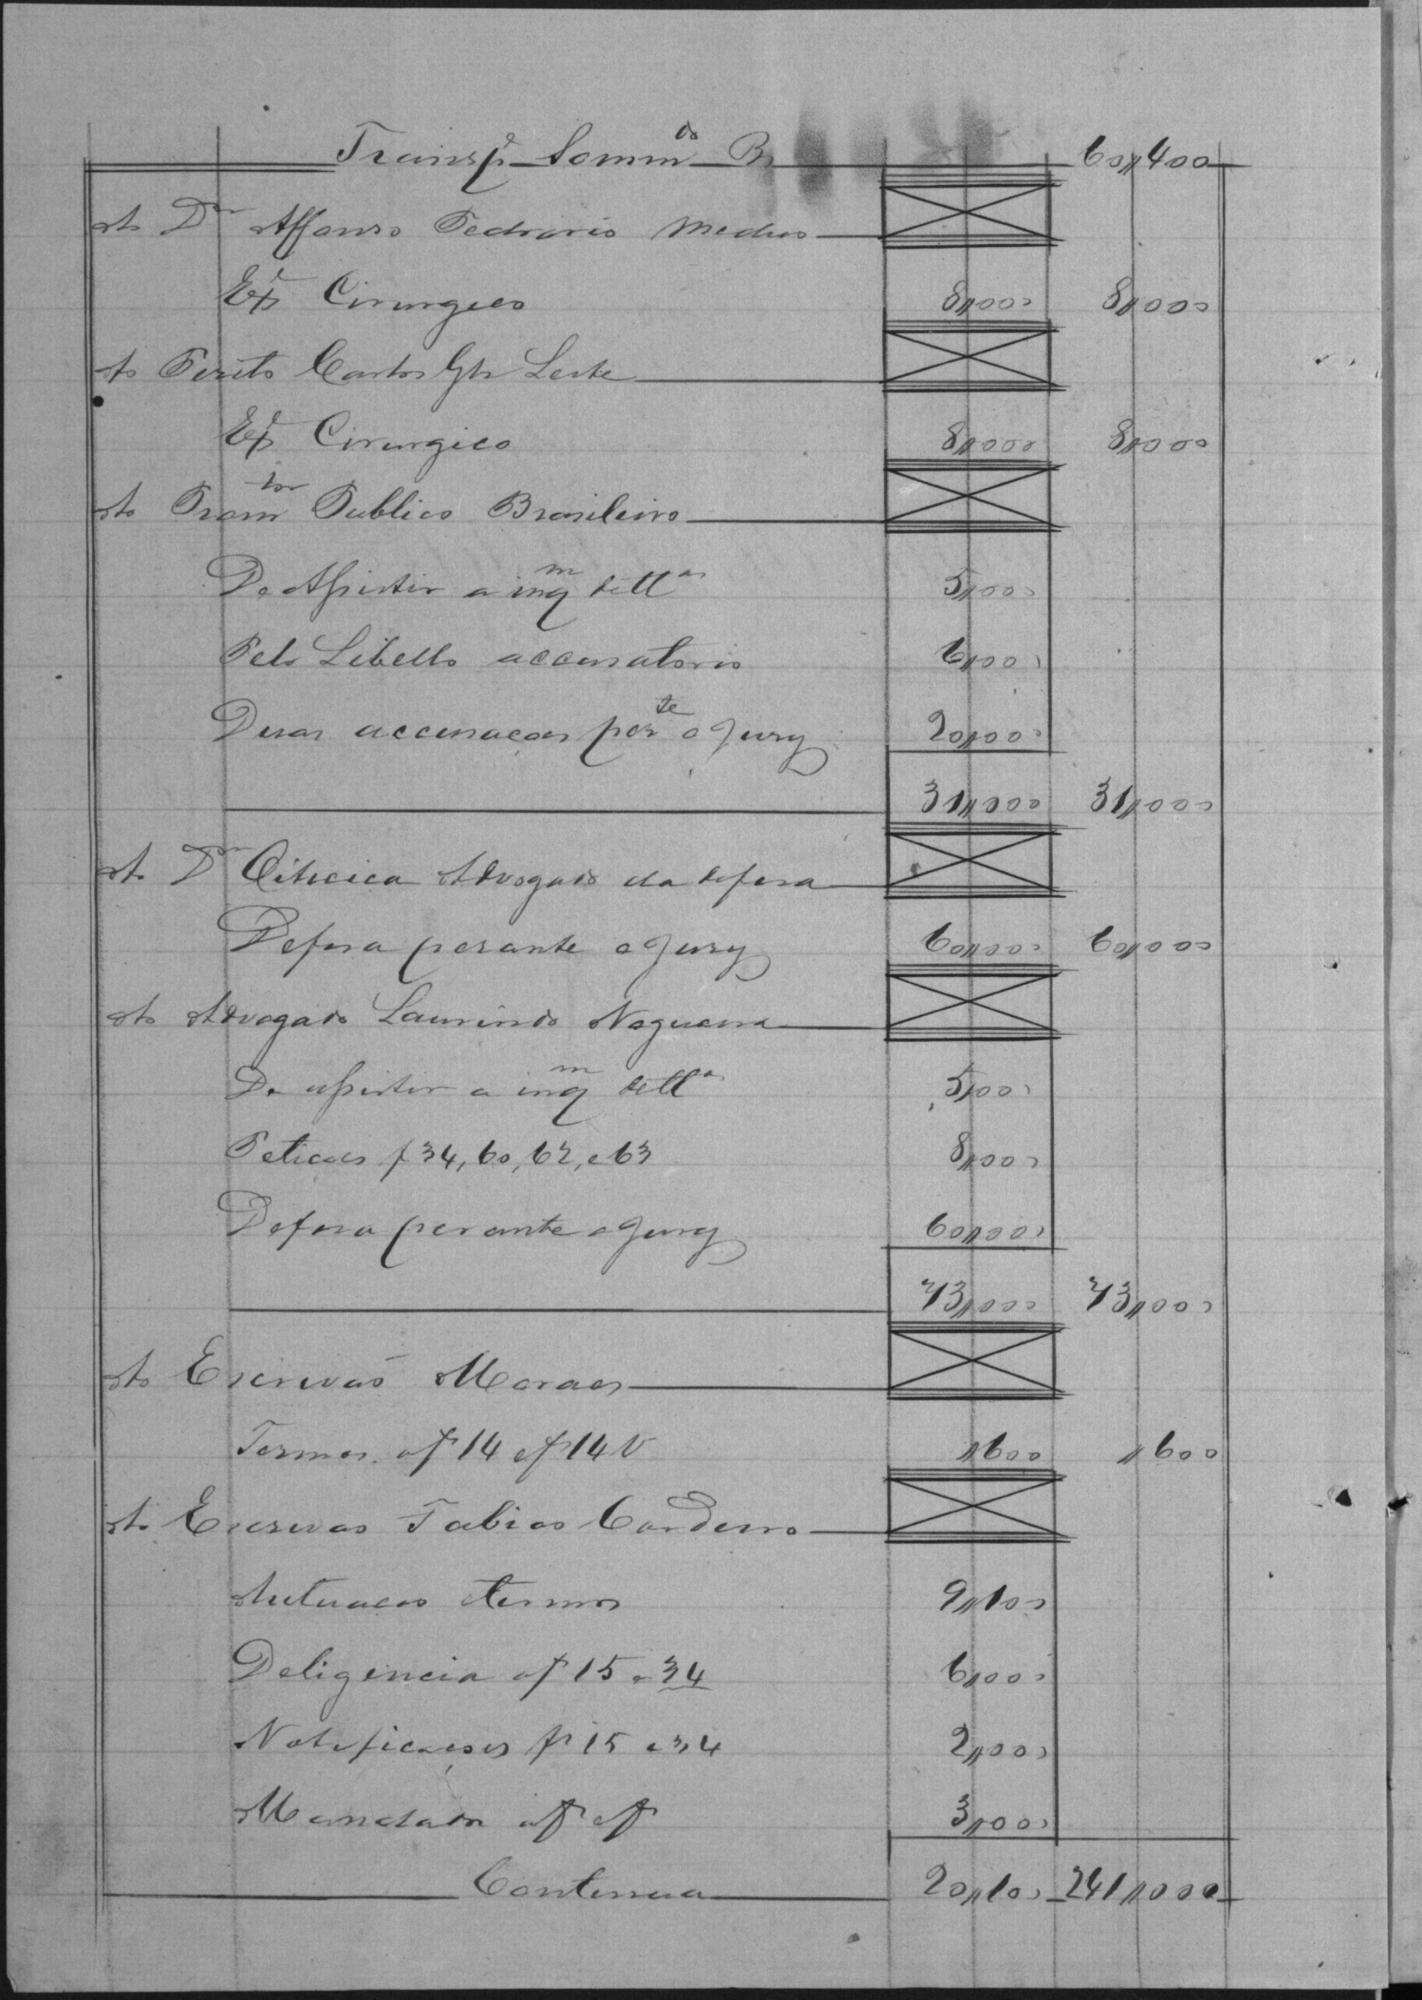 Transp.e Somm do R 60,,400
Ao Dr Affonso Pedrario Medico
Ex.e Cirurgico 8,,000 8,,000
Ao Perito Carlos Glz Leite
Ex.e Cirurgico 8,,000 8,,000
Ao Promtor Publico Brasileiro
De Assistir a inqm detta 5,,000
Pelo Libello accusatorio 6,,000
Duas accusações perte o Jury 20,,000
31,,000 31,,000
Ao Dr Advogado da defesa
Defesa perante o Jury 60,,000 60,,000
Ao Advogado Laurindo Nogueira
De assistir a inqm detta 5,,000
Peticoes f 34, 60, 62, e 63 8,,000
Defesa perante o Jury 60,,000
73,,000 73,,000
Ao Escrivaõ Moraes
Termos af 14 ef 14 V ,,600 ,,600
Ao Escrivao Tabiao Cordeiro
Autuacao etermos 9,,100
Deligencia af 15 e 34 6,,000
Notificações f 15 e 34 2,,000
Mandados af ef 3,,000
Continua 20,,100 241,,000